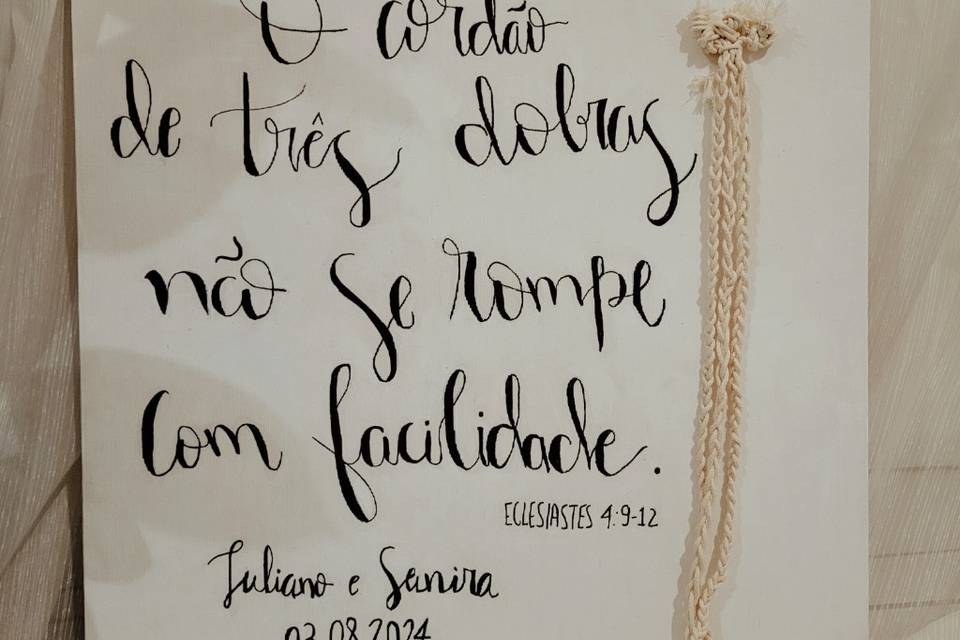 O cordão
de três dobras
não se rompe
com facilidade.
ECLESIASTES 4:9-12
Juliano e Sanira
03.08.2024